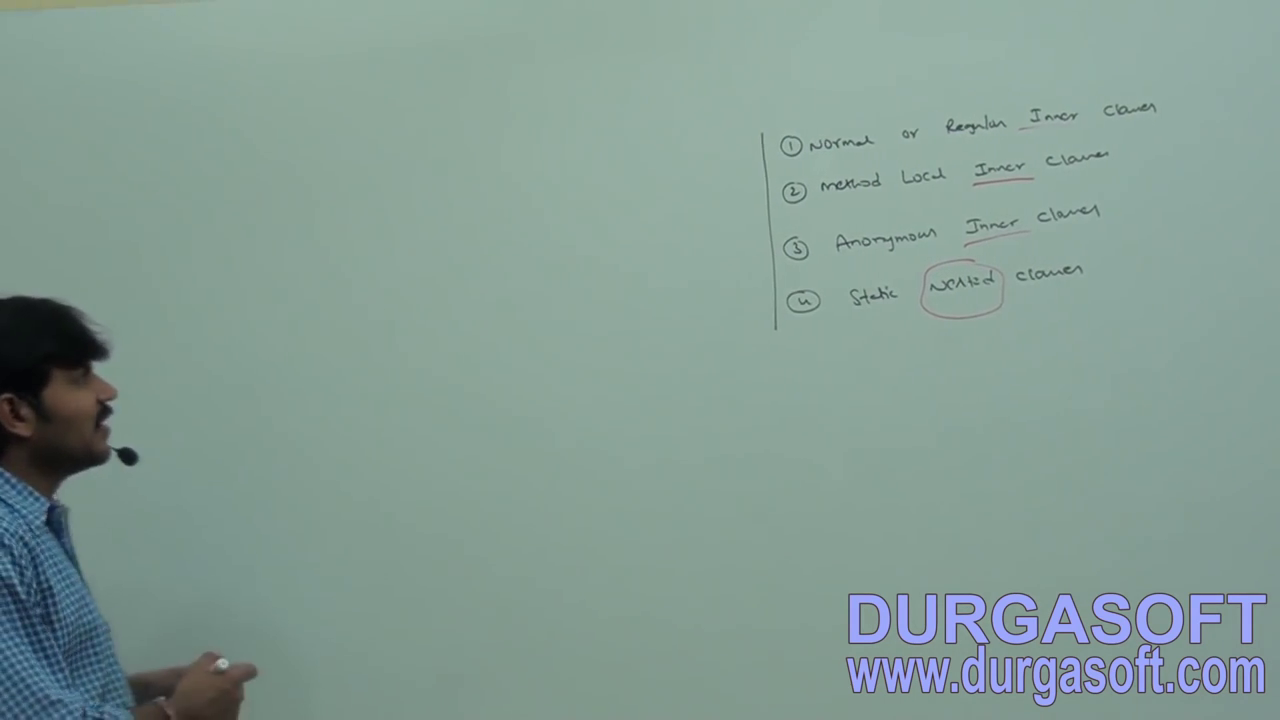 ① Normal or Regular Inner classes
② Method Local Inner classes
③ Anonymous Inner classes
④ Static Nested classes
DURGASOFT
www.durgasoft.com